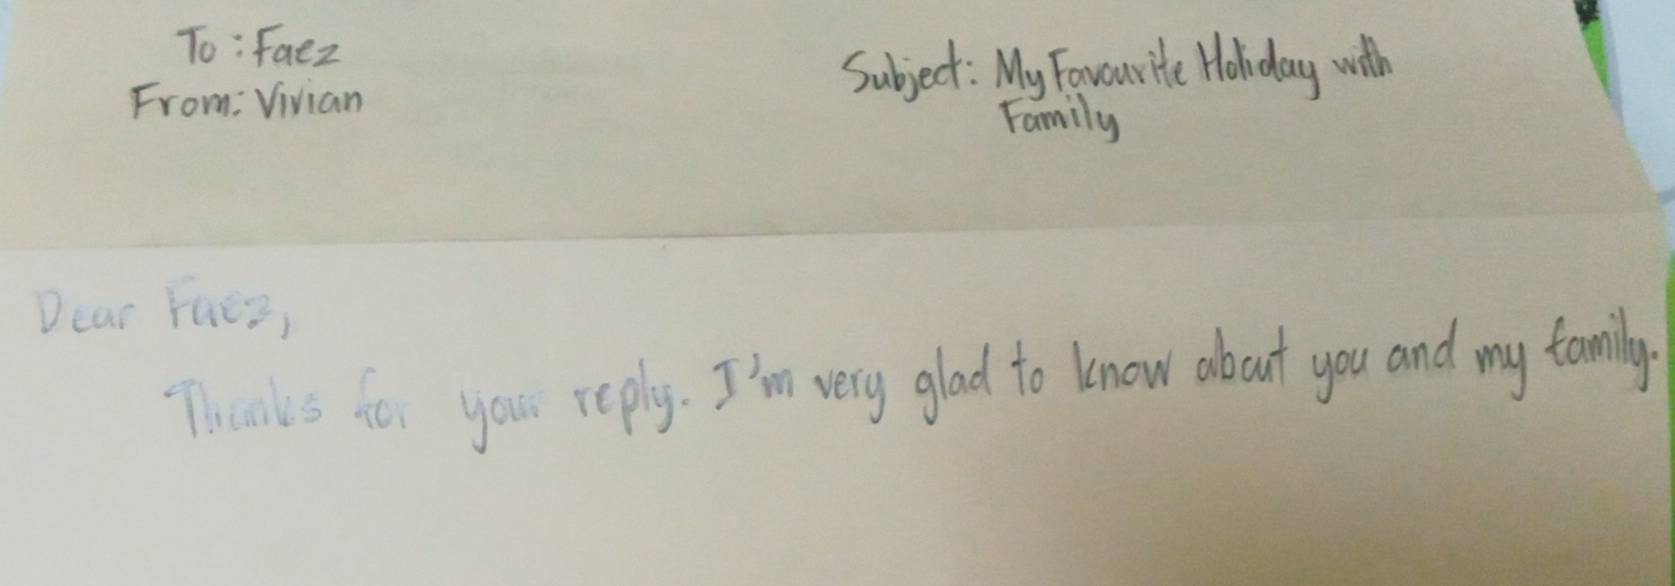 To: Faez
From: Vivian
Subject: My Favourite Holiday with
Family
Dear Faez,
Thanks for your reply. I'm very glad to know about you and my family.